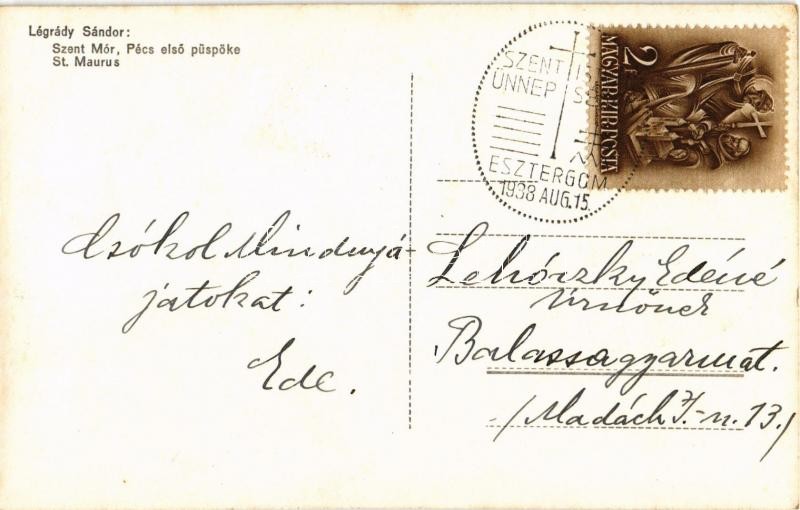 Légrády Sándor:
Szent Mór, Pécs első püspöke
St. Maurus
SZENT IS
ÜNNEP S
ESZTERGOM
1938 AUG.15.
2 F
MAGYAR·KIR·POSTA
Csókol Mindnyá-
jatokat:
Ede.
Lehóczky Edéné
úrnőnek
Balassagyarmat.
/Madách I.-u. 13./